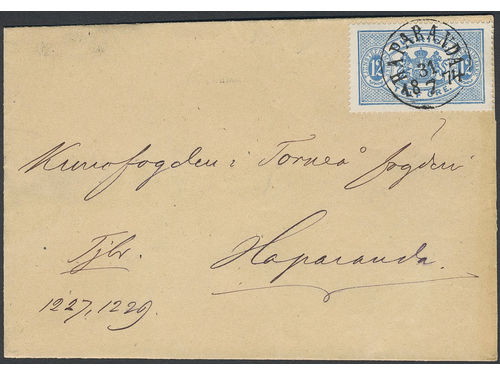 HAPARANDA
31
18 7 74
12 12
ÖRE.
Kronofogden i Torneå fögderi
Tjbr. Haparanda.
1227, 1229.